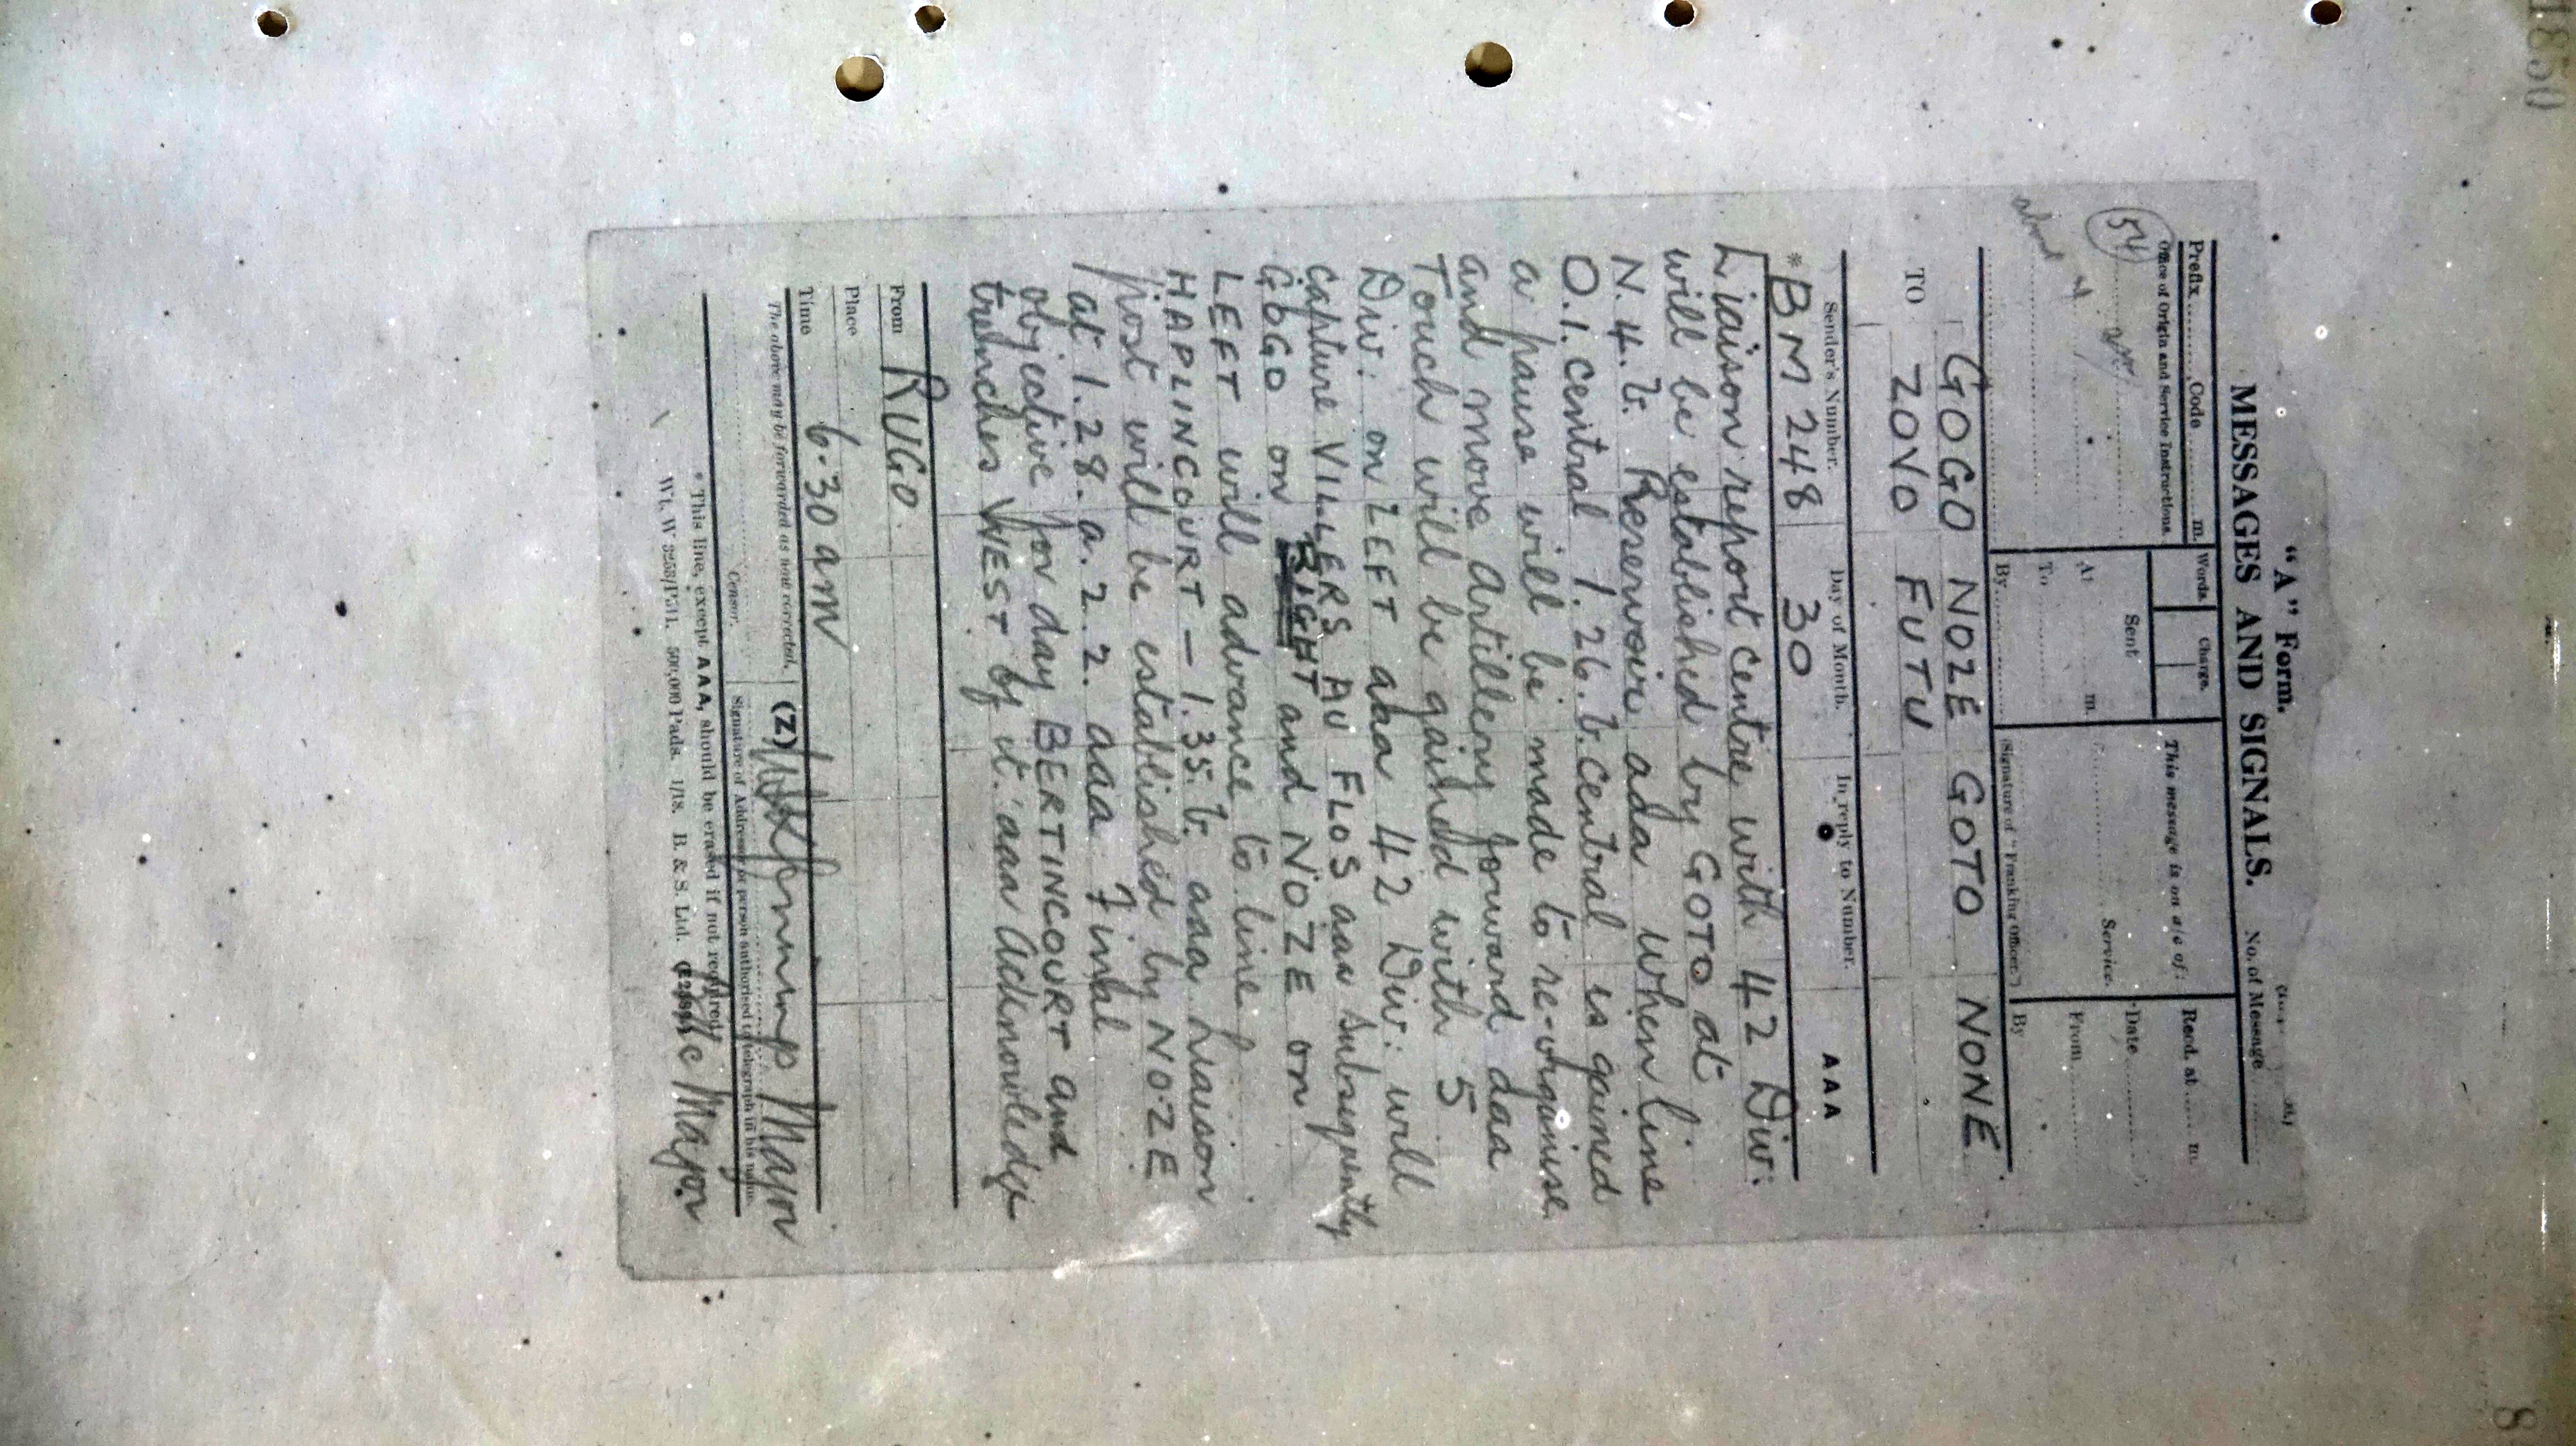 1850
"A" Form.
MESSAGES AND SIGNALS. No. of Message
Prefix Code m. Words. Charge. This message is on a/c of: Recd. at m.
Office of Origin and Service Instructions.
54
Sent
Service. Date
At m.
From
To
By (Signature of "Franking Officer.") By
GOGO NOZE GOTO NONE
TO ZOVO FUTU
Sender's Number. Day of Month. In reply to Number. AAA
* BM 248 30
Liaison report centre with 42 Div:
will be established by GOTO at
N.4.b. Reservoir aaa when line
O.1. central 1.26.b. central is gained
a pause will be made to re-organise
and move artillery forward aaa
Touch will be gained with 5
Div: on LEFT aaa 42 Div: will
capture VILLERS AU FLOS aaa Subsequently
GOGO on RIGHT and NOZE on
LEFT will advance to line
HAPLINCOURT — 1.35.b. aaa Liaison
post will be established by NOZE
at 1.28.a.2.2. aaa Final
objective for day BERTINCOURT and
trenches WEST of it. aaa Acknowledge
From RUGO.
Place
Time 6.30 am
The above may be forwarded as now corrected. (Z) Major
Censor. Signature of Addressor or person authorised to telegraph in his name.
* This line, except AAA, should be erased if not required.
Wt. W 3253/P511. 500,000 Pads. 1/18. B. & S. Ltd. Major
8